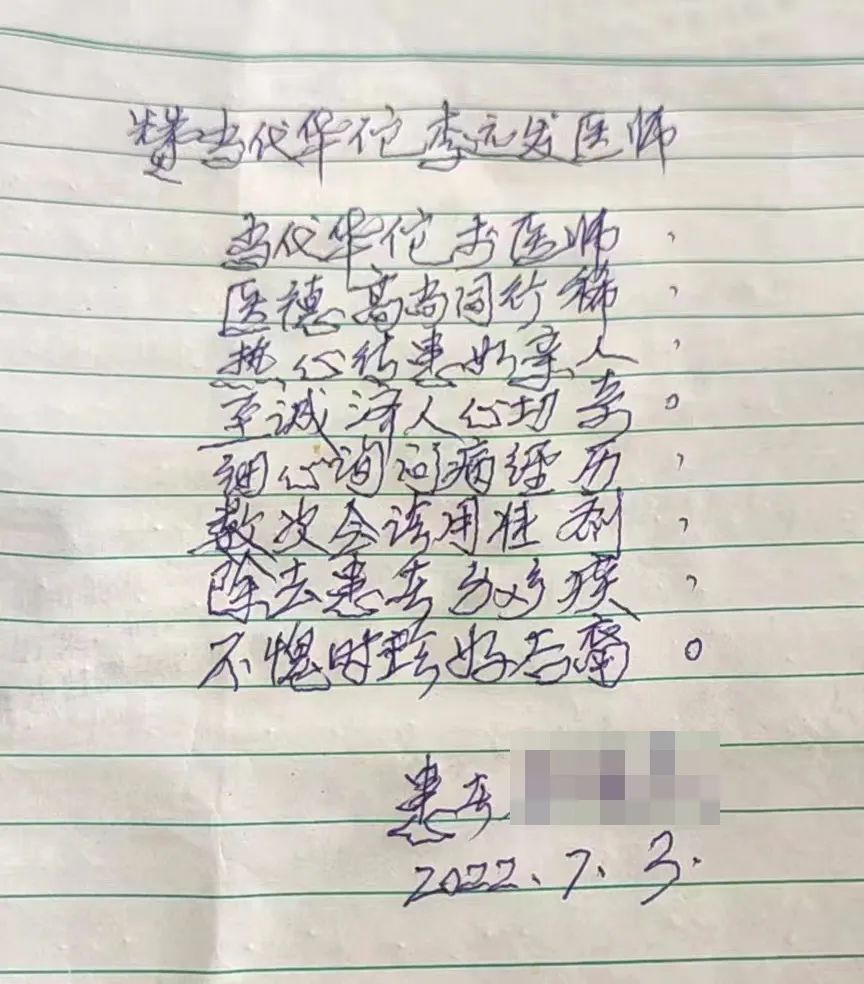 赞当代华佗李元发医师
当代华佗 医师，
医德高尚同行稀，
热心待患如亲人，
至诚济人心切 。
细心询问病经历，
数次会诊用佳剂，
除去患者 疾，
不愧时珍好后裔。
患者
2022.7.3.